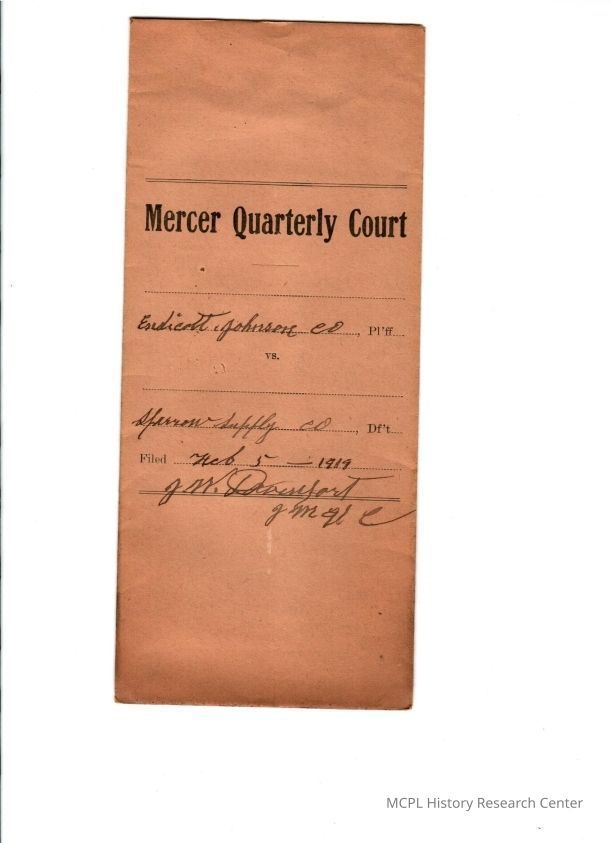 Mercer Quarterly Court
Endicott Johnson CO, Pl'ff
vs.
Sparrow Supply CO, Df't
Filed Feb 5 - 1919
J W. Davenport
J M Q C
MCPL History Research Center